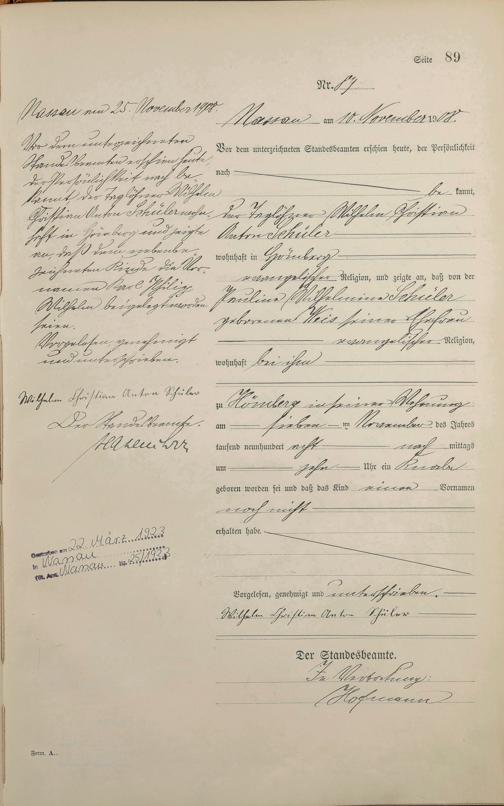 Seite 89
Nr. 87
Nassau am 10. November 1908.
Vor dem unterzeichneten Standesbeamten erschien heute, der Persönlichkeit
nach
be kannt,
der Taglöhner Wilhelm Christian
Anton Schüler
wohnhaft in Hömberg
evangelischer Religion, und zeigte an, daß von der
Pauline Wilhelmine Schüler
geborenen Weis seiner Ehefrau
evangelischer Religion,
wohnhaft bei ihm
zu Hömberg in seiner Wohnung
am sieben ten November des Jahres
tausend neunhundert acht nach mittags
um zehn Uhr ein Knabe
geboren worden sei und daß das Kind einen Vornamen
noch nicht
erhalten habe.
Vorgelesen, genehmigt und unterschrieben.
Wilhelm Christian Anton Schüler
Der Standesbeamte.
In Vertretung:
Hofmann
Nassau am 25. November 1908.
Vor dem unterzeichneten
Standesbeamten erschien heute,
der Persönlichkeit nach be-
kannt, der Taglöhner Wilhelm
Christian Anton Schüler wohn-
haft in Hömberg und zeigte
an, daß dem nebenbe-
zeichneten Kinde die Vor-
namen Karl Philipp
Wilhelm beigelegt worden
seien.
Vorgelesen, genehmigt
und unterschrieben.
Wilhelm Christian Anton Schüler
Der Standesbeamte.
am 22. März 1923
in Nassau
Nassau Nr.
Form. A.